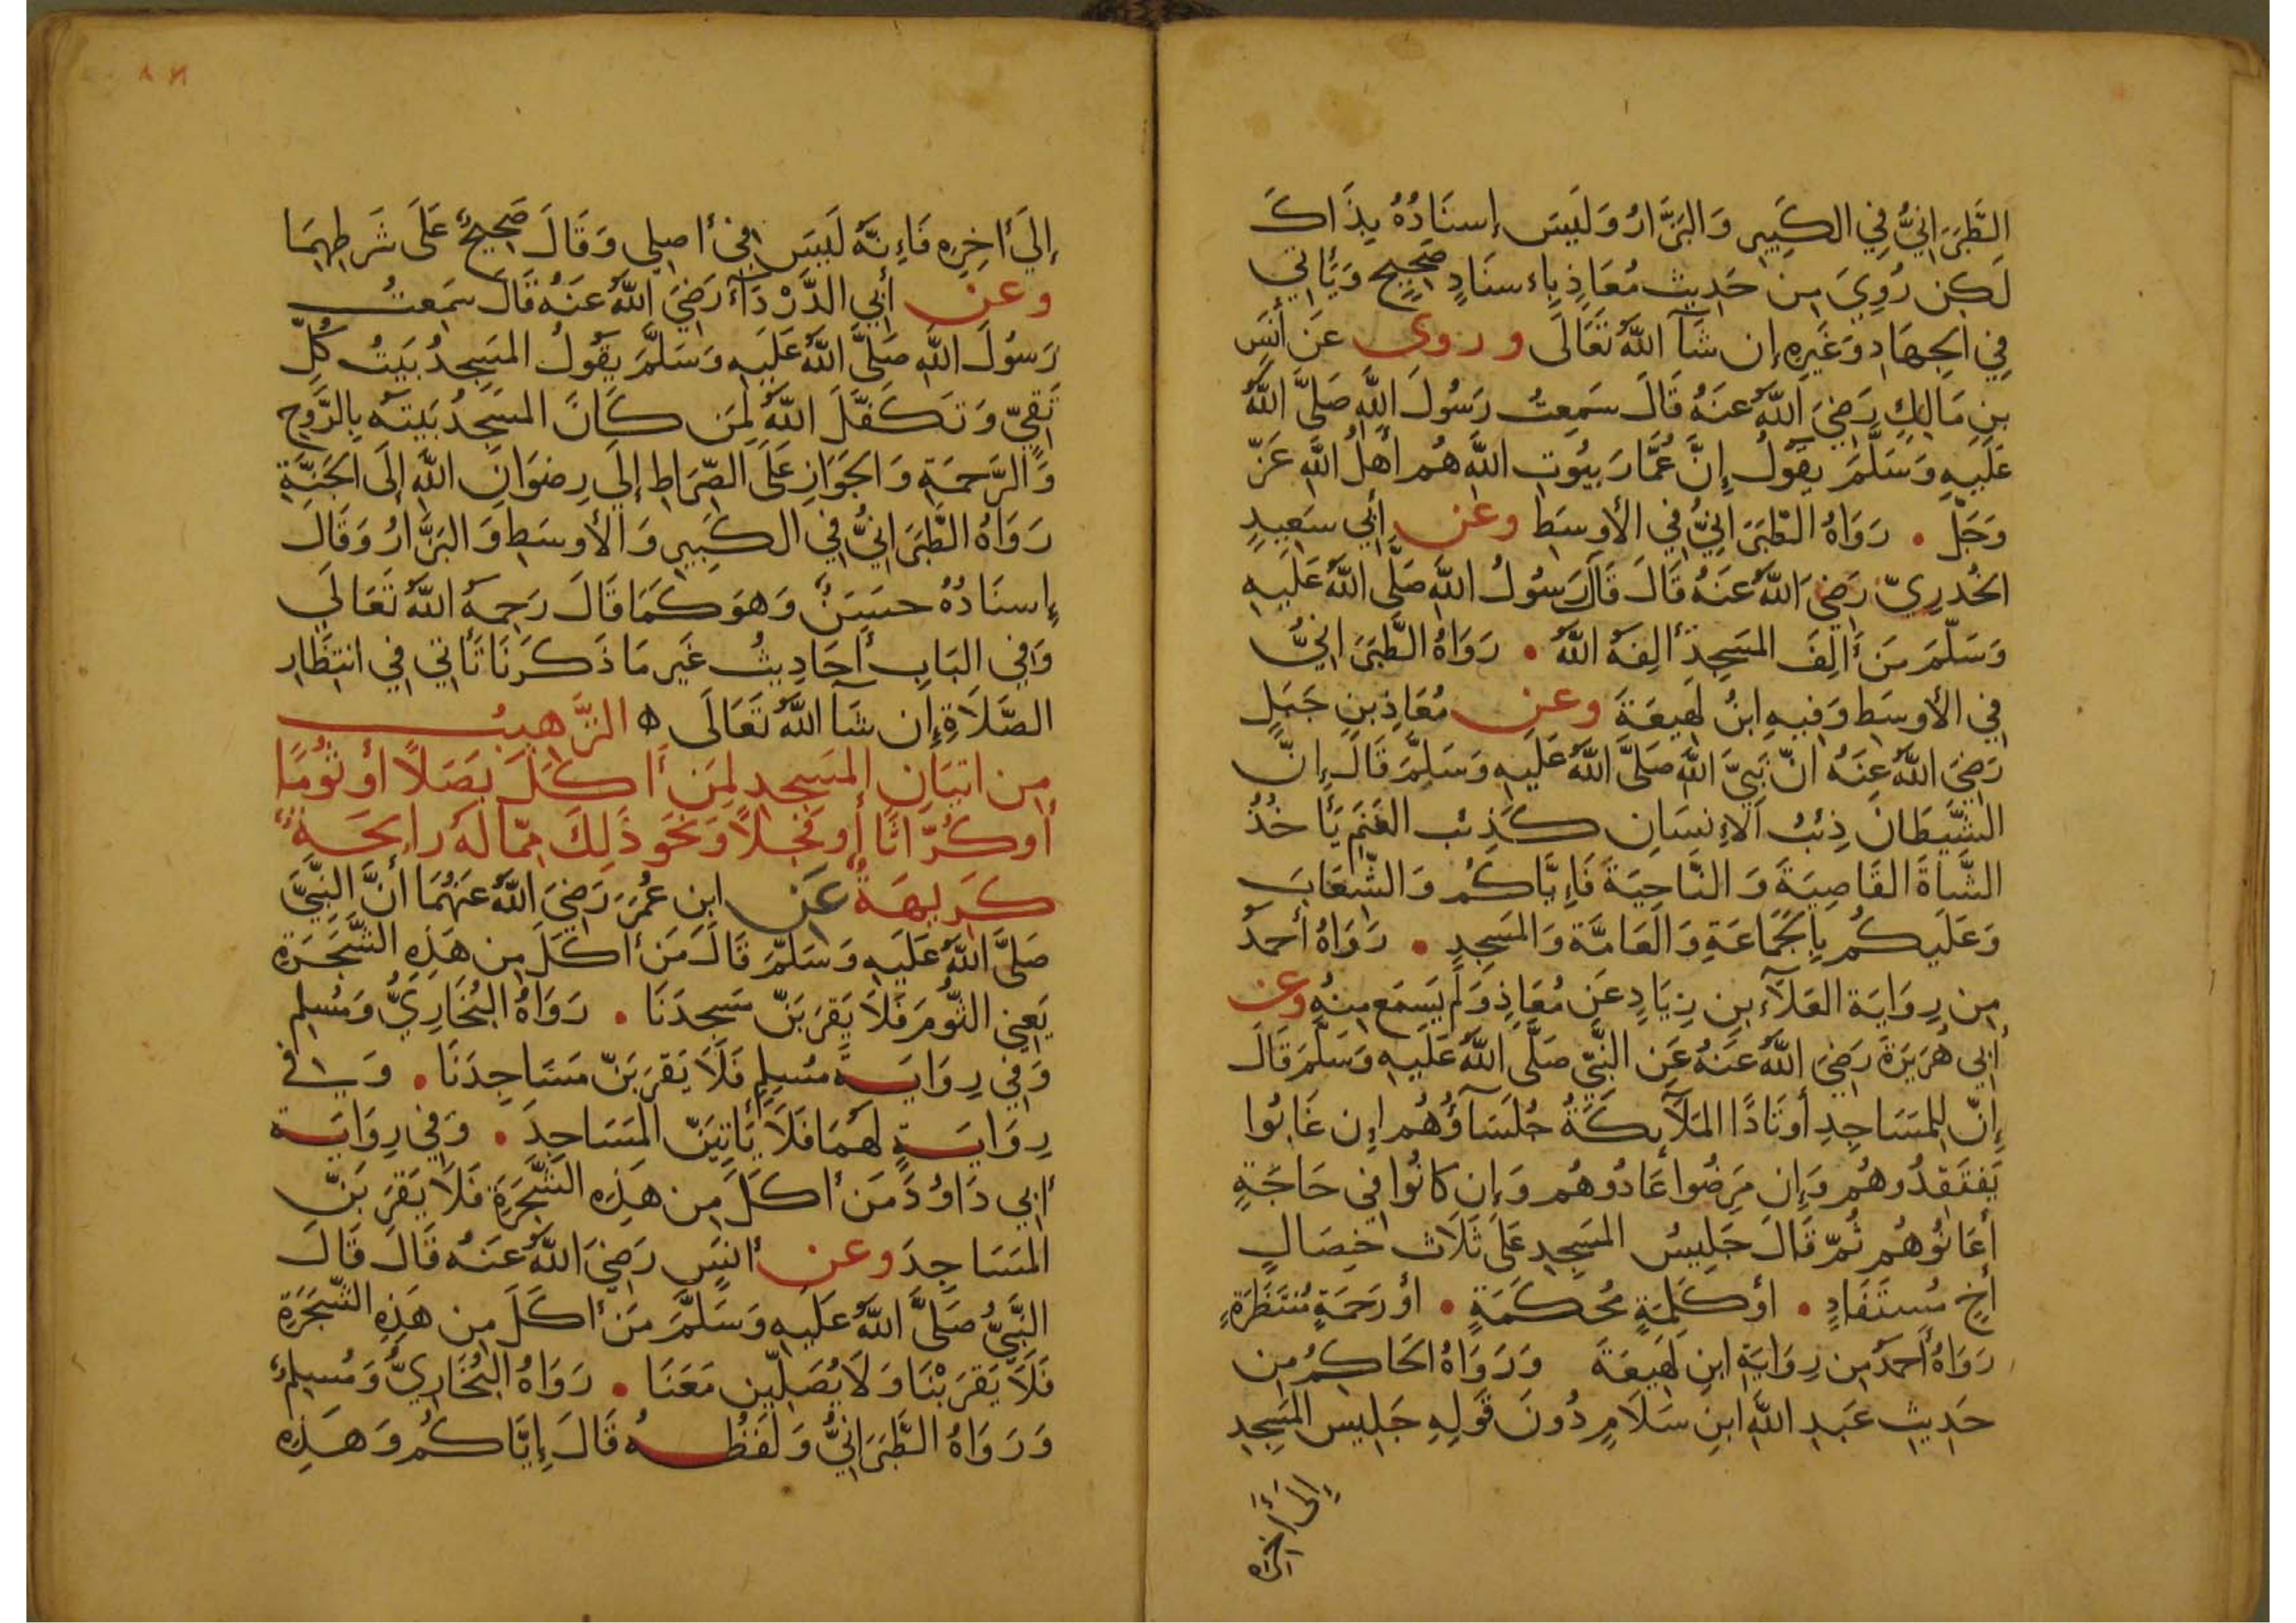 الطَّبَرَانِيُّ فِي الكَبِيرِ وَالبَزَّارُ وَلَيسَ إسنَادُهُ بِذَاكَ
لَكِن رُوِيَ مِن حَدِيث مُعَاذٍ بِإسنَادٍ صَحِيحٍ وَيَأتِي
فِي الجِهَادِ وَغَيرِهِ إن شَآ اللَّهُ تَعَالَى وروى عَن أنَسِ
بنِ مَالِكٍ رَضِيَ اللَّهُ عَنهُ قَالَ سَمِعتُ رَسُولَ اللَّهِ صَلَّى اللَّهُ
عَلَيهِ وَسَلَّمَ يَقُولُ إنَّ عُمَّارَ بيُوتِ اللَّهِ هُم أهلُ اللَّهِ عَزّ
وَجَلّ • رَوَاهُ الطَّبَرَانِيُّ فِي الأوسَطِ وعن أبِي سَعِيدٍ
الخُدرِيّ رَضِيَ اللَّهُ عَنهُ قَالَ قَالَ رَسُولُ اللَّهِ صَلَّى اللَّهُ عَلَيهِ
وَسَلَّمَ مَن أَلِفَ المَسجِدَ ألِفَهُ اللَّهُ • رَوَاهُ الطَّبَرَانِيُّ
فِي الأوسَطِ وَفِيهِ ابنُ لَهِيعَةَ وعن مُعَاذِ بنِ جَبَلٍ
رَضِيَ اللَّهُ عَنهُ انّ نَبِيَّ اللَّهِ صَلَّى اللَّهُ عَلَيهِ وَسَلَّمَ قَالَ إنّ
الشَّيطَانَ ذِئبُ الإنسَانِ كَذِئب الغَنَمِ يَأخُذُ
الشَّاةَ القَاصِيَةَ وَالنَّاحِيَةَ فَإيَّاكُم وَالشِّعَابَ
وَعَلَيكُم بِالجَمَاعَةِ وَالعَامَّة وَالمَسجِدِ • رَوَاهُ أحمَدُ
مِن رِوَايَة العَلَآء بنِ زِيَادٍ عَن مُعَاذٍ وَلَم يَسمَع مِنهُ وعن
أبِي هُرَيرَةَ رَضِيَ اللَّهُ عَنهُ عَن النَّبِيّ صَلَّى اللَّهُ عَلَيهِ وَسَلَّمَ قَالَ
إنّ لِلمَسَاجِدِ أوتَادًا المَلَآئِكَةُ جُلَسَآؤُهُم إن غَابُوا
يَفتَقِدُوهُم وَإن مَرِضُوا عَادُوهُم وَإن كَانُوا فِي حَاجَةٍ
أعَانُوهُم ثُمّ قَالَ جَلِيسُ المَسجِدِ عَلَى ثَلَاث خِصَالٍ
أخٍ مُستَفَادٍ • أو كَلِمَةٍ مُحكَمَةٍ • أو رَحمَةٍ مُنتَظَرَةٍ
رَوَاهُ أحمَدُ مِن رِوَايَةِ ابنِ لَهِيعَةَ وَرَوَاهُ الحَاكِمُ مِن
حَدِيثِ عَبدِ اللَّهِ ابنِ سَلَامٍ دُونَ قَولِهِ جَلِيس المَسجِدِ
إلَى أخِرِهِ
إلَى أخِرِه فَإنَّهُ لَيسَ فِي أصلِي وَقَالَ صَحِيحٌ عَلَى شَرطِهِمَا
وعن أبِي الدَّرْدَآء رَضِيَ اللَّهُ عَنهُ قَالَ سَمِعتُ
رَسُولَ اللَّهِ صَلَّى اللَّهُ عَلَيهِ وَسَلَّمَ يَقُولُ المَسجِدُ بَيتُ كُلِّ
تَقِيّ وَتَكَفَّلَ اللَّهُ لِمَن كَانَ المَسجِدُ بَيتَهُ بِالرَّوحِ
وَالرَّحمَةِ وَالجَوَازِ عَلَى الصِّرَاطِ إلَى رِضوَانِ اللَّهِ إلَى الجَنَّةِ
رَوَاهُ الطَّبَرَانِيُّ فِي الكَبِيرِ وَالأوسَطِ وَالبَزَّارُ وَقَالَ
إسنَادُهُ حسَنٌ وَهوَ كَمَا قَالَ رَحِمَهُ اللَّهُ تَعَالَى
وَفِي البَابِ أحَادِيثُ غَير مَا ذَكَرنَا تَأتِي فِي انتِظَارِ
الصَّلَاةِ إن شَآ اللَّهُ تَعَالَى ه الترَّهِيبُ
مِن اتيَانِ المَسجِدِ لِمَن أكَلَ بَصَلًا أو ثُومًا
أو كُرَّاثًا أو فجلًا وَنَحوَ ذَلِكَ مِمّا لَهُ رايحَةٌ
كَرِيهَةٌ عَن ابنِ عُمَرَ رَضِيَ اللَّهُ عَنهُمَا أنَّ النَّبِيَّ
صَلَّى اللَّهُ عَلَيهِ وَسَلَّمَ قَالَ مَن أكَلَ مِن هَذِهِ الشَّجَرَةِ
يَعنِي الثُّومَ فَلَا يَقرَبَنّ مَسجِدَنَا • رَوَاهُ البُخَارِيُّ وَمُسلِم
وَفِي رِوَايَةِ مُسلِمٍ فَلَا يَقرَبَنّ مَسَاجِدَنَا • وَفِي
رِوَايَةٍ لَهُمَا فَلَا يَأتِيَنّ المَسَاجِدَ • وَفِي رِوَايَة
أبِي دَاوُدَ مَن أكَلَ مِن هَذِهِ الشَّجَرَةِ فَلَا يَقرَبَنّ
المَسَاجِدَ وعن أنَسٍ رَضِيَ اللَّهُ عَنهُ قَالَ قَالَ
النَّبِيُّ صَلَّى اللَّهُ عَلَيهِ وَسَلَّمَ مَن أكَلَ مِن هَذِهِ الشَّجَرَةِ
فَلَا يَقرَبْنَا وَلَا يُصَلِّيَن مَعَنَا • رَوَاهُ البُخَارِيُّ وَمُسلِمٌ
وَرَوَاهُ الطَّبَرَانِيُّ وَلَفظُهُ قَالَ إيَّاكُم وَهَذِهِ